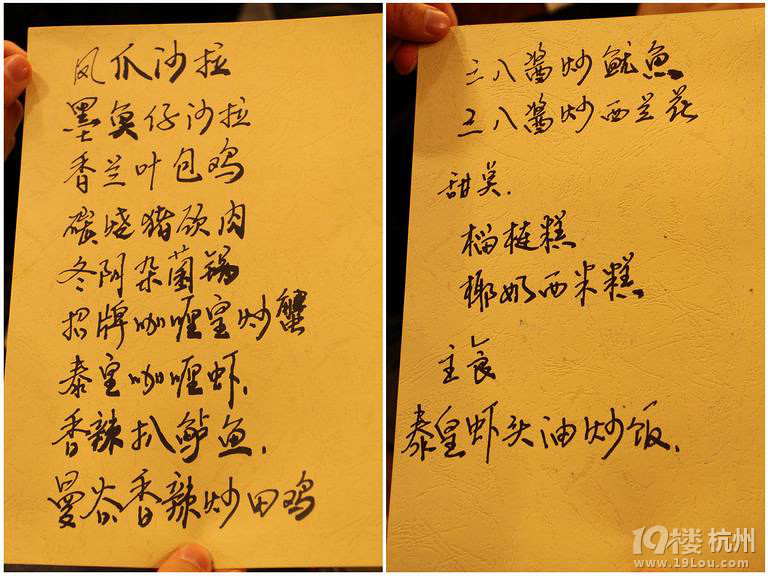 凤爪沙拉
墨鱼仔沙拉
香兰叶包鸡
碳烧猪颈肉
冬阴杂菌锅
招牌咖喱皇炒蟹
泰皇咖喱虾.
香辣扒鲈鱼.
曼谷香辣炒田鸡
三八酱炒鱿鱼
三八酱炒西兰花
甜芙.
榴梿糕
椰奶西米糕
主食
泰皇虾头油炒饭.
19楼杭州
www.19Lou.com